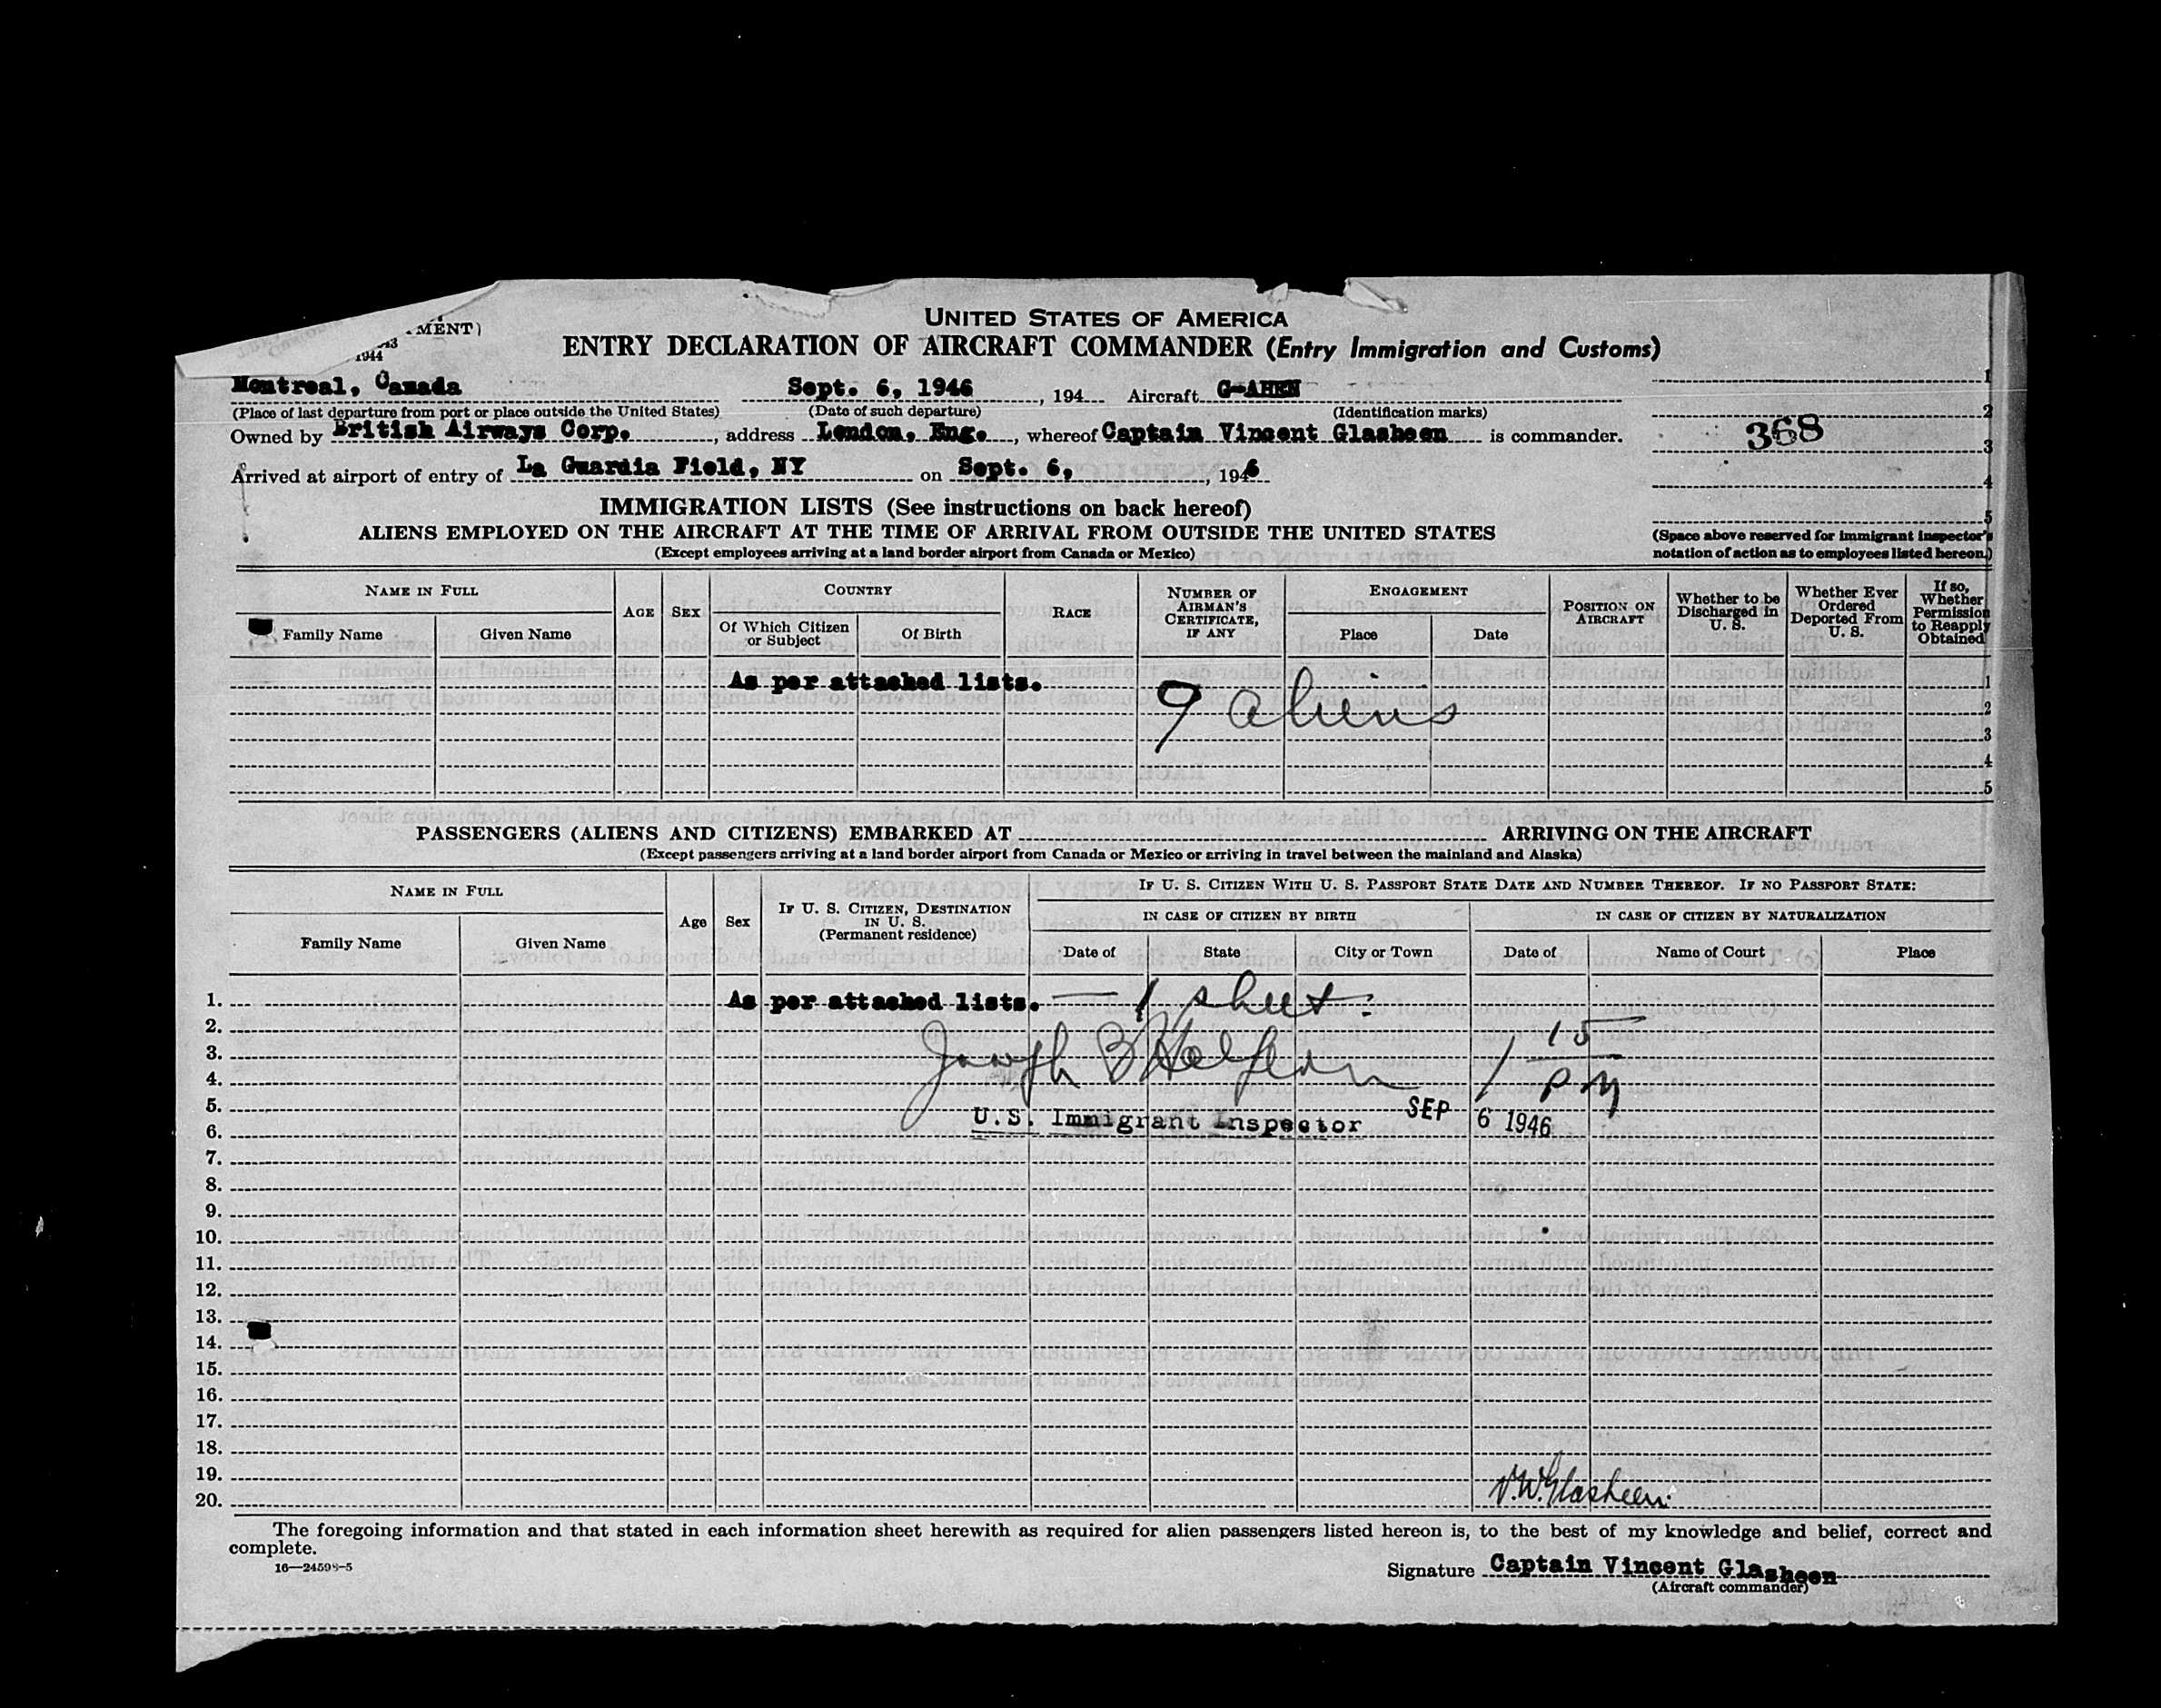 MENT)
1944
UNITED STATES OF AMERICA
ENTRY DECLARATION OF AIRCRAFT COMMANDER (Entry Immigration and Customs)
Montreal, Canada Sept. 6, 1946, 194 Aircraft G-AHEN 1
(Place of last departure from port or place outside the United States) (Date of such departure) (Identification marks) 2
Owned by British Airways Corp., address London, Eng., whereof Captain Vincent Glasheen is commander. 368 3
Arrived at airport of entry of La Guardia Field, NY on Sept. 6, 1946 4
5
IMMIGRATION LISTS (See instructions on back hereof)
ALIENS EMPLOYED ON THE AIRCRAFT AT THE TIME OF ARRIVAL FROM OUTSIDE THE UNITED STATES
(Except employees arriving at a land border airport from Canada or Mexico)
(Space above reserved for immigrant inspector's
notation of action as to employees listed hereon.)
NAME IN FULL
Family Name Given Name
AGE SEX
COUNTRY
Of Which Citizen or Subject Of Birth
RACE
NUMBER OF AIRMAN'S CERTIFICATE, IF ANY
ENGAGEMENT
Place Date
POSITION ON AIRCRAFT
Whether to be Discharged in U. S.
Whether Ever Ordered Deported From U. S.
If so, Whether Permission to Reapply Obtained
As per attached lists. 1
9 aliens 2
3
4
5
PASSENGERS (ALIENS AND CITIZENS) EMBARKED AT ARRIVING ON THE AIRCRAFT
(Except passengers arriving at a land border airport from Canada or Mexico or arriving in travel between the mainland and Alaska)
NAME IN FULL
Family Name Given Name
Age Sex
IF U. S. CITIZEN, DESTINATION IN U. S.
(Permanent residence)
IF U. S. CITIZEN WITH U. S. PASSPORT STATE DATE AND NUMBER THEREOF. IF NO PASSPORT STATE:
IN CASE OF CITIZEN BY BIRTH IN CASE OF CITIZEN BY NATURALIZATION
Date of State City or Town Date of Name of Court Place
1. As per attached lists. — 1 sheet.
2.
3. Joseph B 1 15
4. PM
5.
6. U.S. Immigrant Inspector SEP 6 1946
7.
8.
9.
10.
11.
12.
13.
14.
15.
16.
17.
18.
19. V.W. Glasheen
20.
The foregoing information and that stated in each information sheet herewith as required for alien passengers listed hereon is, to the best of my knowledge and belief, correct and
complete.
16—24598-5
Signature Captain Vincent Glasheen
(Aircraft commander)